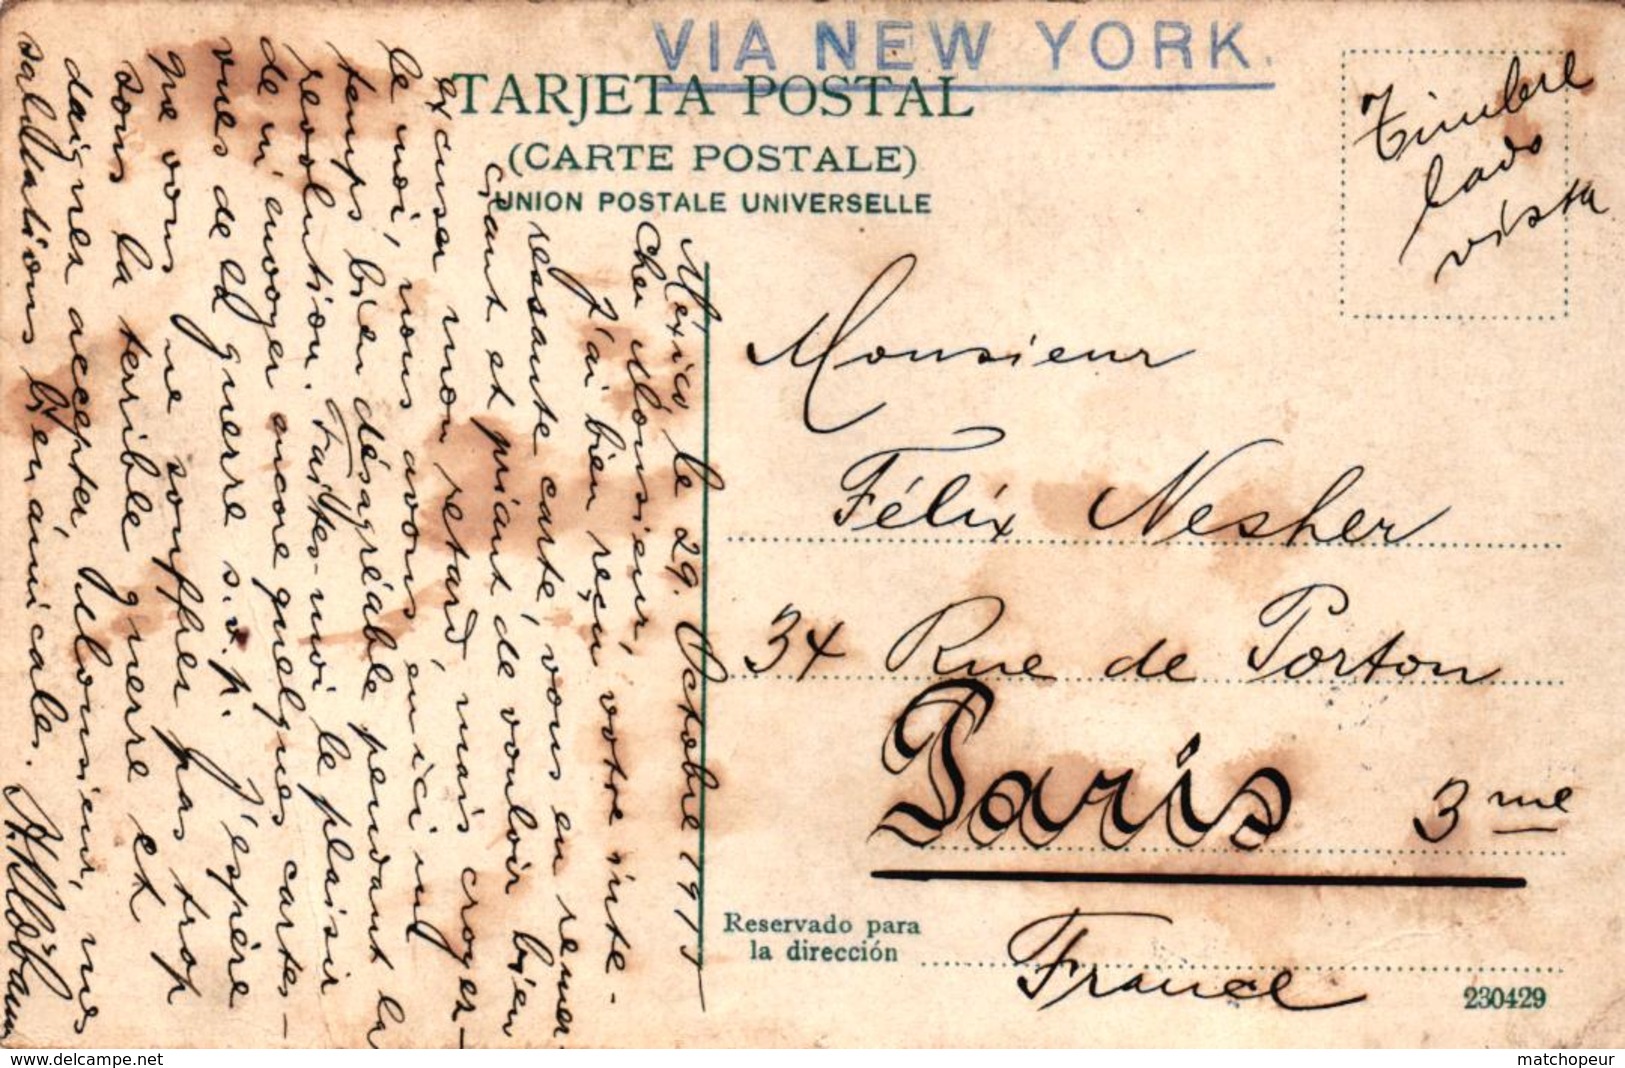 VIA NEW YORK.
TARJETA POSTAL
(CARTE POSTALE)
UNION POSTALE UNIVERSELLE
Timbre
lado
vista
México le 29. Octobre 1915
Cher Monsieur,
J'ai bien reçu votre inte-
ressante carte, vous en remer-
ciant et priant de vouloir bien
excuser mon retard, mais croyez-
le moi, nous avons eu ici un
temps bien désagréable pendant la
revolution. Faites-moi le plaisir
de m'envoyer encore quelques cartes-
vues de la guerre s.v.p. J'espère
que vous ne souffrez pas trop
sous la terrible guerre et
daignez accepter, Monsieur, mes
salutations bien amicales.
Monsieur
Félix Nesher
34 Rue de Porton
Paris 3me
France
Reservado para
la dirección
230429
delcampe.net
matchopeur